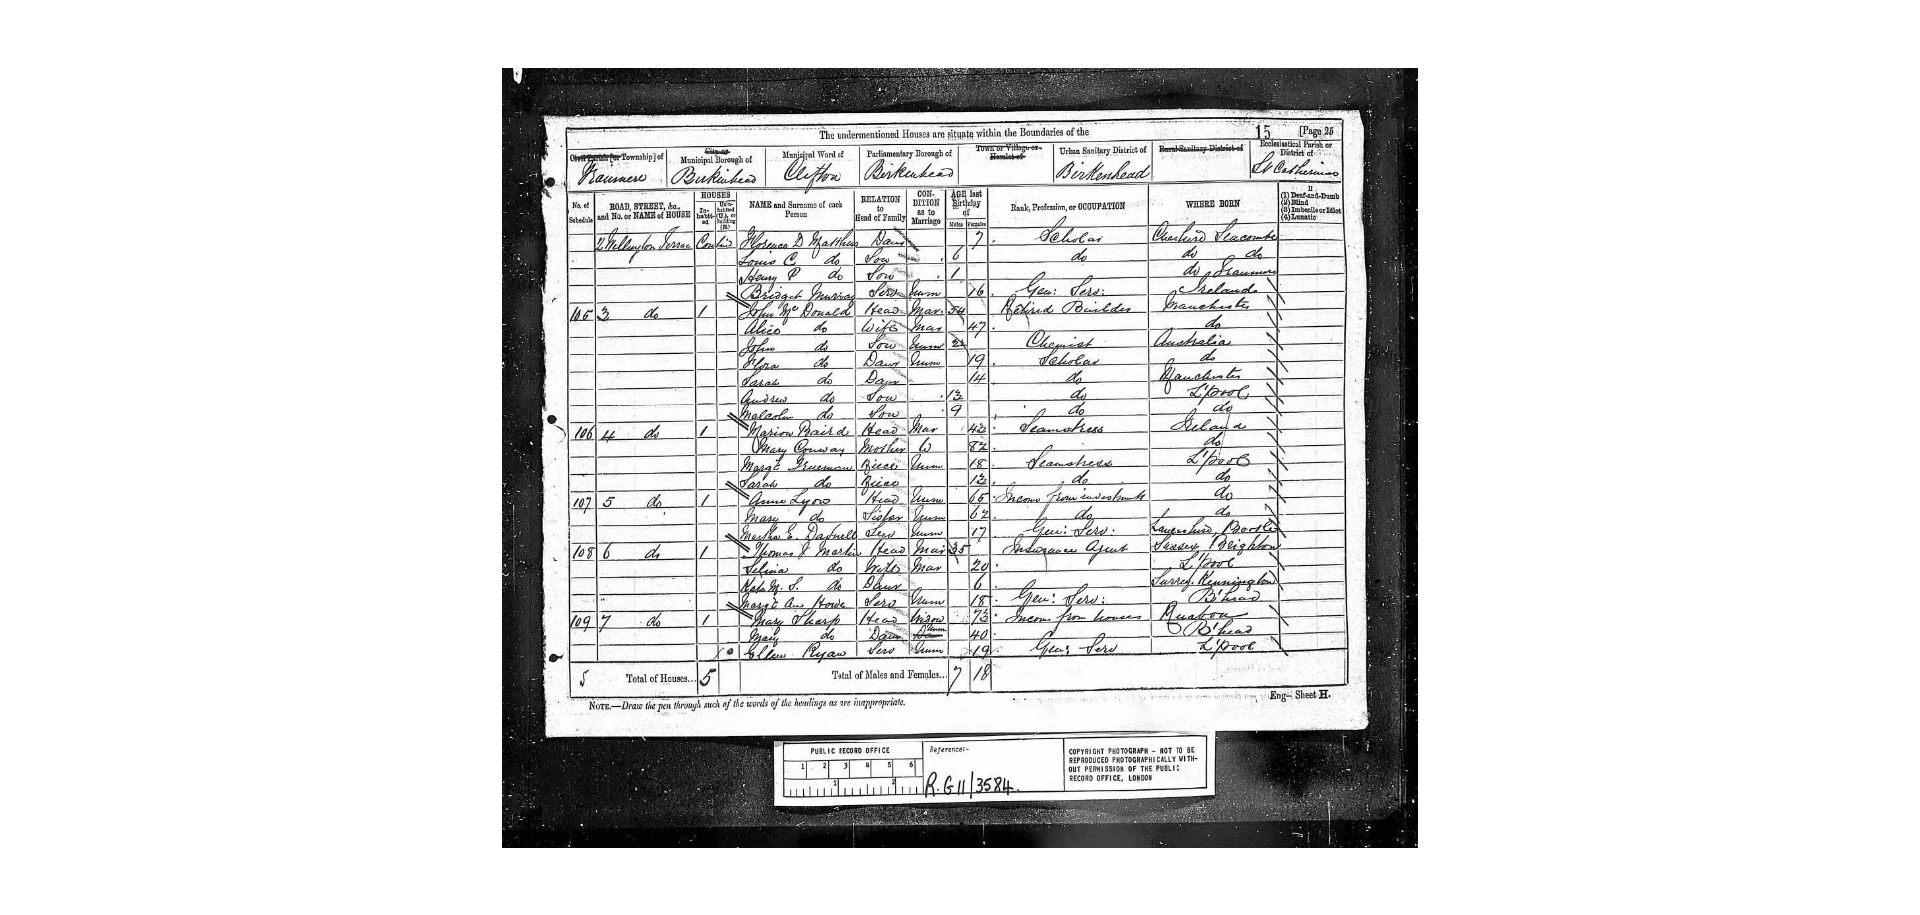 The undermentioned Houses are situate within the Boundaries of the 15 [Page 25
Civil Parish [or Township] of City or Municipal Borough of Municipal Ward of Parliamentary Borough of Town or Village or Hamlet of Urban Sanitary District of Rural Sanitary District of Ecclesiastical Parish or District of
Tranmere Birkenhead Clifton Birkenhead Birkenhead St Catherines
No. of Schedule ROAD, STREET, &c., and No. or NAME of HOUSE HOUSES Inhabited Uninhabited (U.), or building (B.) NAME and Surname of each Person RELATION to Head of Family CONDITION as to Marriage AGE last Birthday of Males Females Rank, Profession, or OCCUPATION WHERE BORN If (1) Deaf-and-Dumb (2) Blind (3) Imbecile or Idiot (4) Lunatic
2 Terrace Contind Florence D Matthews Daur 7 Scholar Cheshire Seacombe
Louis C do Son 6 do do do
Henry P do Son 1 do Tranmere
Bridget Murray Serv Unm 16 Gen: Serv: Ireland
105 3 do 1 John McDonald Head Mar 54 Retired Builder Manchester
Alice do Wife Mar 47 do
John do Son Unm Chemist Australia
Flora do Daur Unm 19 Scholar do
Sarah do Daur 14 do Manchester
Andrew do Son 13 do L'pool
Malcolm do Son 9 do do
106 4 do 1 Marion Baird Head Mar 43 Seamstress Ireland
Mary Conway Mother W 82 do
Margt Niece Unm 18 Seamstress L'pool
Sarah do Niece 13 do do
107 5 do 1 Anne Lyon Head Unm 65 Income from investments do
Mary do Sister Unm 62 do do
Martha E. Serv Unm 17 Gen: Serv: Lancashire, Bootle
108 6 do 1 Thomas J Martin Head Mar 35 Insurance Agent Sussex Brighton
Selina do Wife Mar 20 L'pool
Kate M. S. do Daur 6 Surrey. Kennington
Margt Ann Howe Serv Unm 18 Gen: Serv: B'head
109 7 do 1 Mary Sharp Head Widow 73 Income from houses Ruabon
Mary do Daur Unm 40 B'head
Ellen Ryan Serv Unm 19 Gen: Serv L'pool
5 Total of Houses... 5 Total of Males and Females... 7 18
Eng—Sheet H.
NOTE.—Draw the pen through such of the words of the headings as are inappropriate.
PUBLIC RECORD OFFICE
1 2 3 4 5 6
1 2
Reference:-
R.G 11/3584
COPYRIGHT PHOTOGRAPH - NOT TO BE
REPRODUCED PHOTOGRAPHICALLY WITH-
OUT PERMISSION OF THE PUBLIC
RECORD OFFICE, LONDON